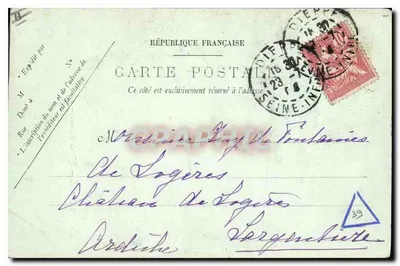 RÉPUBLIQUE FRANÇAISE
CARTE POSTALE
Ce côté est exclusivement réservé à l'adresse
Expédié par
M
Demt à
Rue
N°
L'inscription du nom et de l'adresse de
l'expéditeur est facultative
DIEPPE
SEINE-INFRE
DIEPPE
16 30
23 -7
SEINE-INFRE
M
de Fontaines
de Logères
Château de Logères
Ardèche Largentière
39